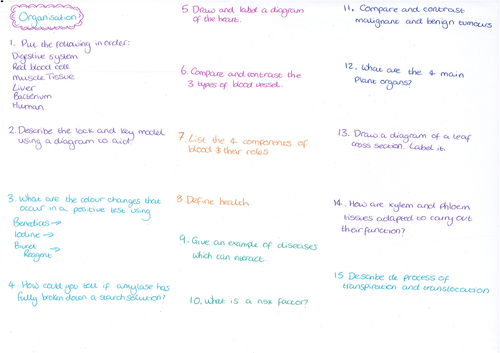 Organisation
1. Put the following in order:
Digestive system
Red blood cell
Muscle Tissue
Liver
Bacterium
Human
2. Describe the lock and key model
using a diagram to aid.
3. What are the colour changes that
occur in a positive test using
Benedicts →
Iodine →
Biuret →
Reagent
4. How could you tell if amylase has
fully broken down a starch solution?
5. Draw and label a diagram
of the heart.
6. Compare and contrast the
3 types of blood vessel.
7. List the 4 components of
blood & their roles.
8. Define health
9. Give an example of diseases
which can interact.
10. What is a risk factor?
11. Compare and contrast
malignant and benign tumours.
12. What are the 4 main
Plant organs?
13. Draw a diagram of a leaf
cross section. Label it.
14. How are xylem and phloem
tissues adapted to carry out
their function?
15. Describe the process of
transpiration and translocation